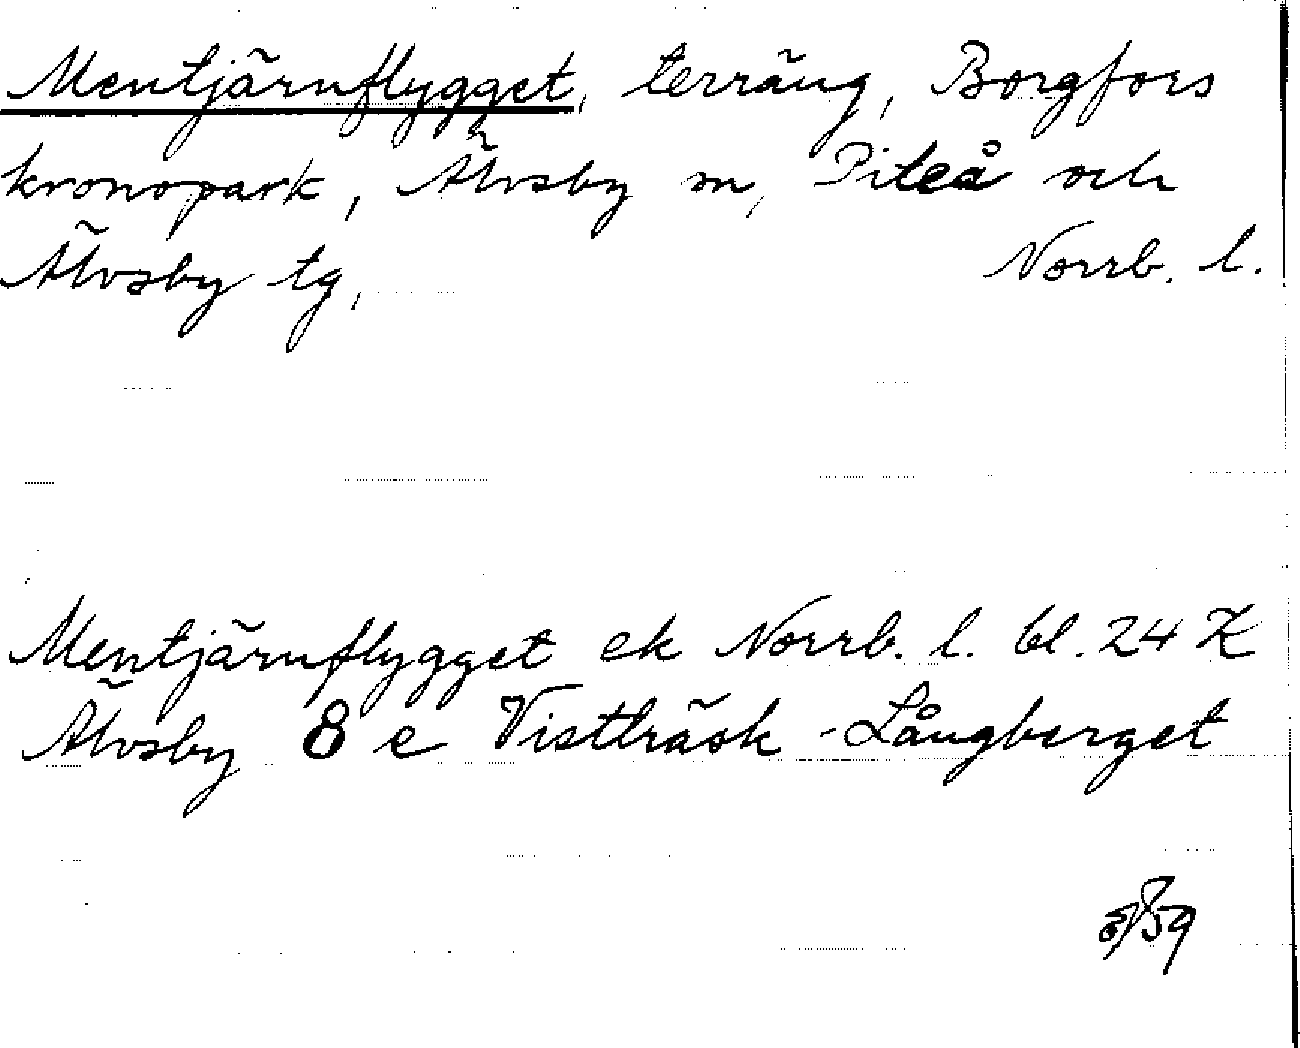 Mentjärnflygget, terräng, Borgfors
kronopark, Älvsby sn, Piteå och
Älvsby tg, Norrb. l.
Mentjärnflygget ek Norrb. l. bl. 24 K
Älvsby 8 e Vistträsk - Långberget